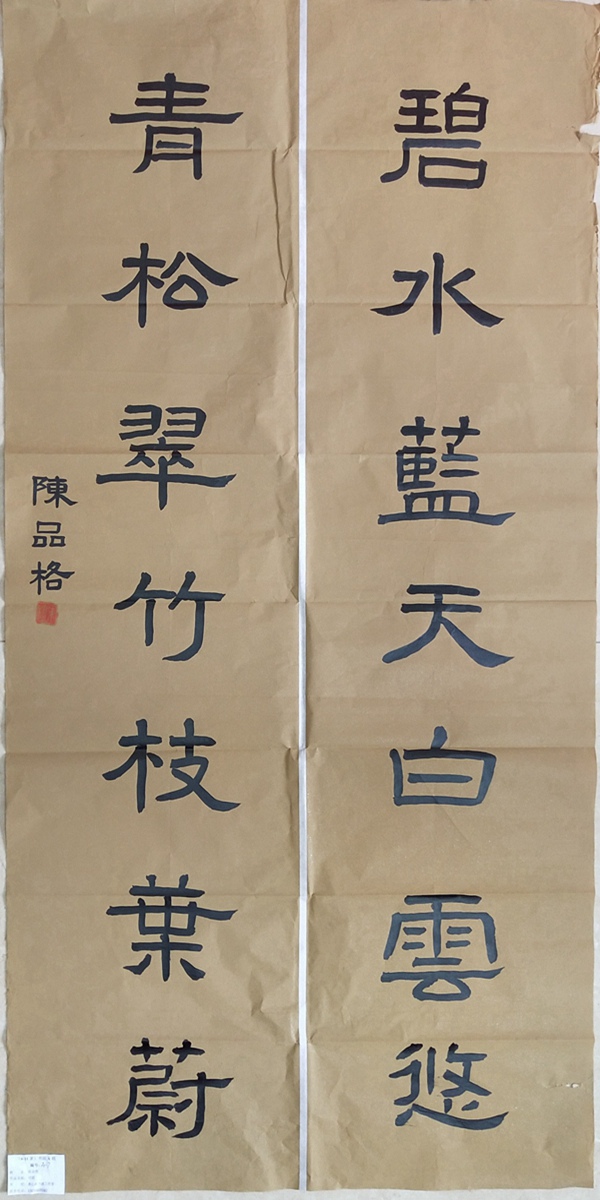 碧水藍天白雲悠
青松翠竹枝葉蔚
陳品格